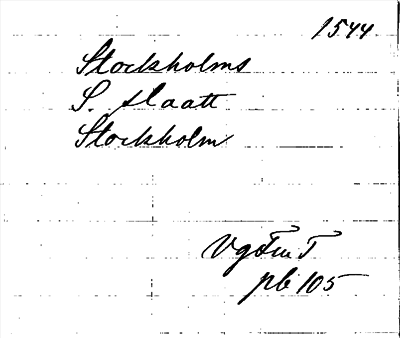 1544
Stockholms
S. slaatt
Stockholm
VgFmT
pb 105